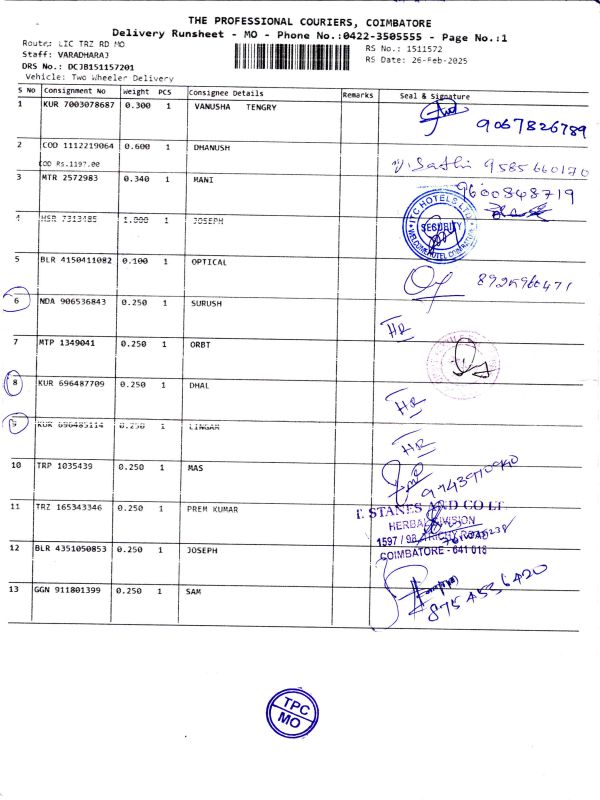 THE PROFESSIONAL COURIERS, COIMBATORE
Delivery Runsheet - MO - Phone No.:0422-3505555 - Page No.:1
Route: LIC TRZ RD MO
RS No.: 1511572
Staff: VARADHARAJ
RS Date: 26-Feb-2025
DRS No.: DCJB151157201
Vehicle: Two Wheeler Delivery
S No Consignment No Weight PCS Consignee Details Remarks Seal & Signature
1 KUR 7003078687 0.300 1 VANUSHA TENGRY
9067826789
2 COD 1112219064 0.600 1 DHANUSH
COD Rs.1197.00
9585660170
3 MTR 2572983 0.340 1 MANI
9600848719
4 MSR 7313485 1.000 1 JOSEPH
ITC HOTELS LTD.
SECURITY
WELCOMHOTEL COIMBATORE
5 BLR 4150411082 0.100 1 OPTICAL
8925960471
6 NDA 906536843 0.250 1 SURUSH
HR
7 MTP 1349041 0.250 1 ORBT
8 KUR 696487709 0.250 1 DHAL
HR
9 KUR 696485114 0.250 1 LINGAM
HR
10 TRP 1035439 0.250 1 MAS
11 TRZ 165343346 0.250 1 PREM KUMAR
T. STANES AND CO LT
HERBAL DIVISION
1597 / 98, TRICHY ROAD
COIMBATORE - 641 018
12 BLR 4351050853 0.250 1 JOSEPH
13 GGN 911801399 0.250 1 SAM
8754536420
TPC
MO